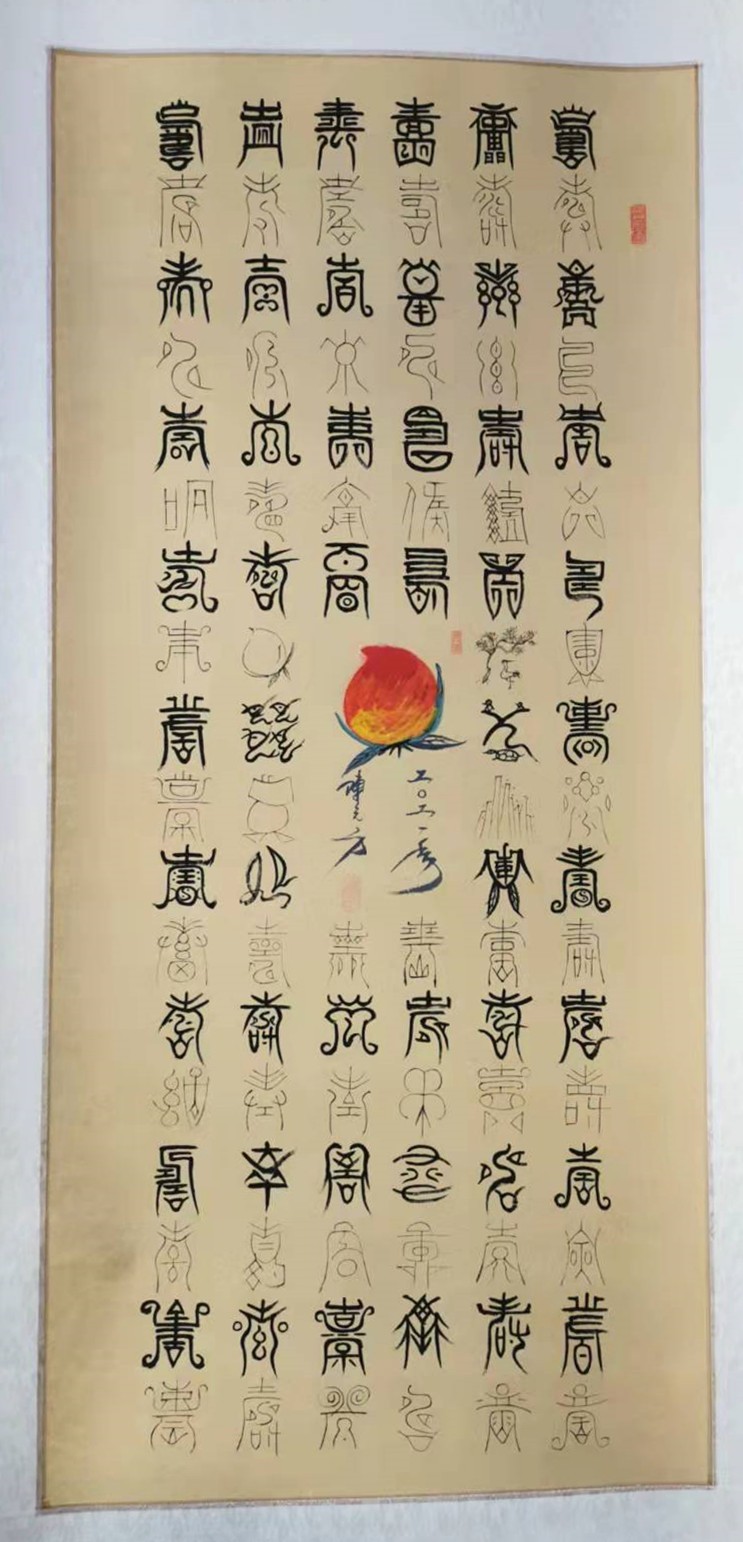 壽壽壽壽壽壽壽壽壽壽壽壽壽壽壽壽壽壽
壽壽壽壽壽壽壽壽壽壽壽壽壽壽壽壽壽壽
壽壽壽壽壽壽壽
壽壽壽壽壽壽壽
壽壽壽壽壽壽壽
壽壽壽壽壽壽壽
壽壽壽壽壽壽壽壽壽壽壽壽壽壽壽壽壽壽
壽壽壽壽壽壽壽壽壽壽壽壽壽壽壽壽壽壽
二〇二一年